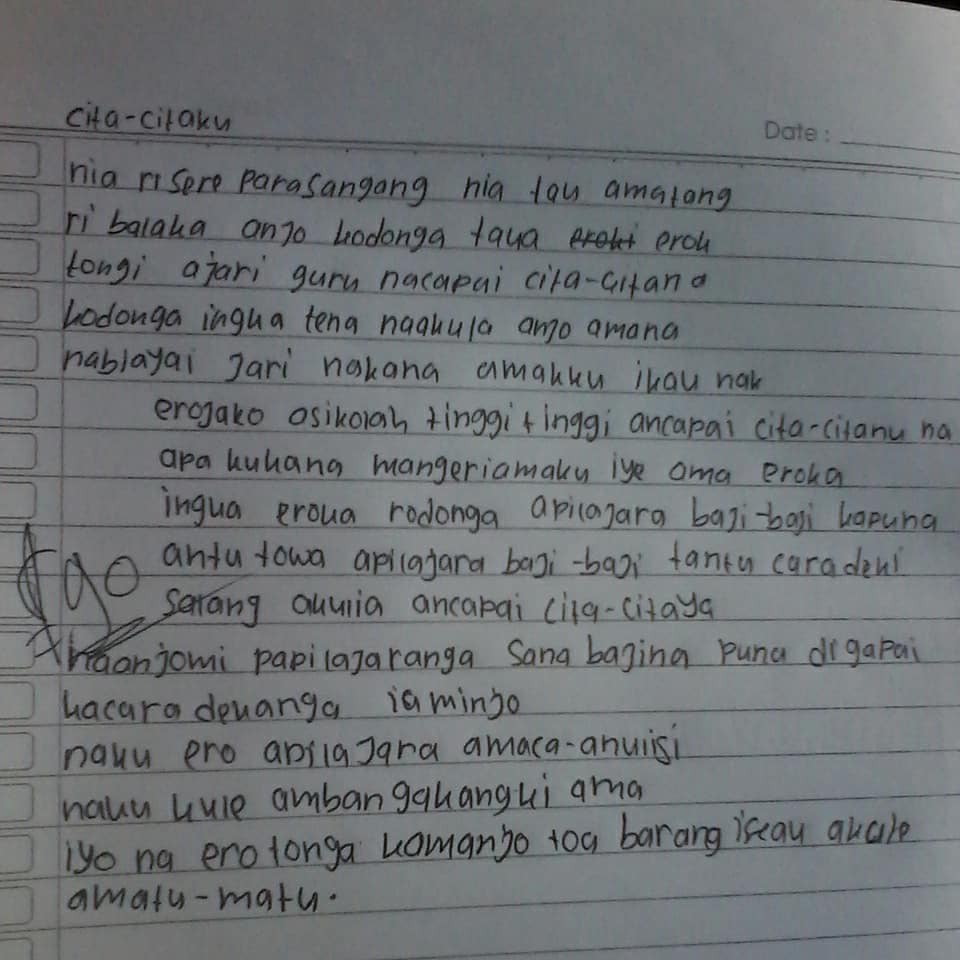 cita-citaku
Date :
nia ri sere parasangang nia tau amatang
ri balaka anjo kodonga taua eroki erok
tongi ajari guru nacapai cita-citana
kodonga ingka tena naakula anjo amana
nabiayai jari nakana amakku ikau nak
erojako asikolah tinggi tinggi ancapai cita-citanu na
apa kukana mangeriamaku iye ama eroka
ingka eroka rodonga apilajara baji-baji kapuna
antu towa apilajara baji-baji tantu caradeki
sarang akulia ancapai cita-citaya
90
naanjomi papilajaranga sana bajina puna digapai
kacaradekanga iaminjo
naku ero apilajara amaca-anulisi
naku kule ambanggakangki ama
iyo na erotonga komanjo toa barang iseau akule
amatu-matu.